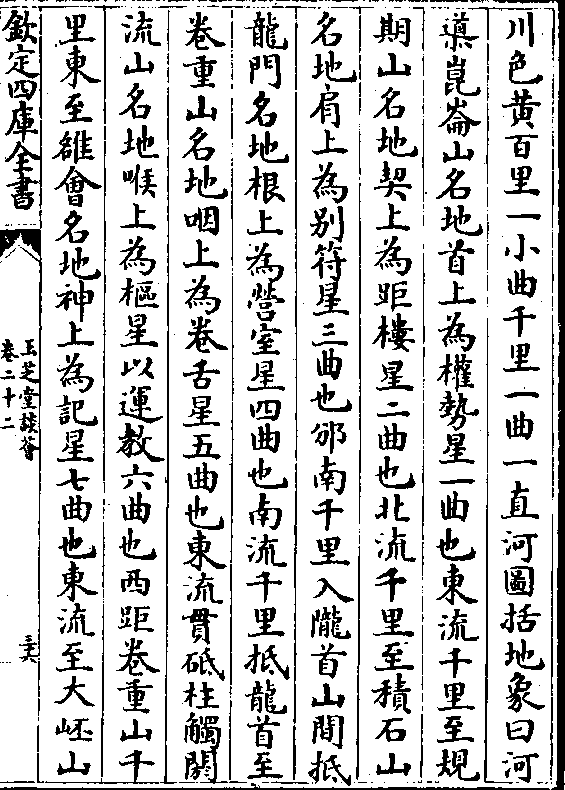 川色黄百里一小曲千里一曲一直河圖括地象曰河
導崑崙山名地首上為權勢星一曲也東流千里至規
期山名地契上為距樓星二曲也北流千里至積石山
名地肩上為别符星三曲也邠南千里入隴首山間抵
龍門名地根上為營室星四曲也南流千里抵龍首至
卷重山名地咽上為卷舌星五曲也東流貫砥柱觸閼
流山名地喉上為樞星以運教六曲也西距卷重山千
里東至雒會名地神上為記星七曲也東流至大岯山
欽定四庫全書
玉芝堂談薈
卷二十二
三六